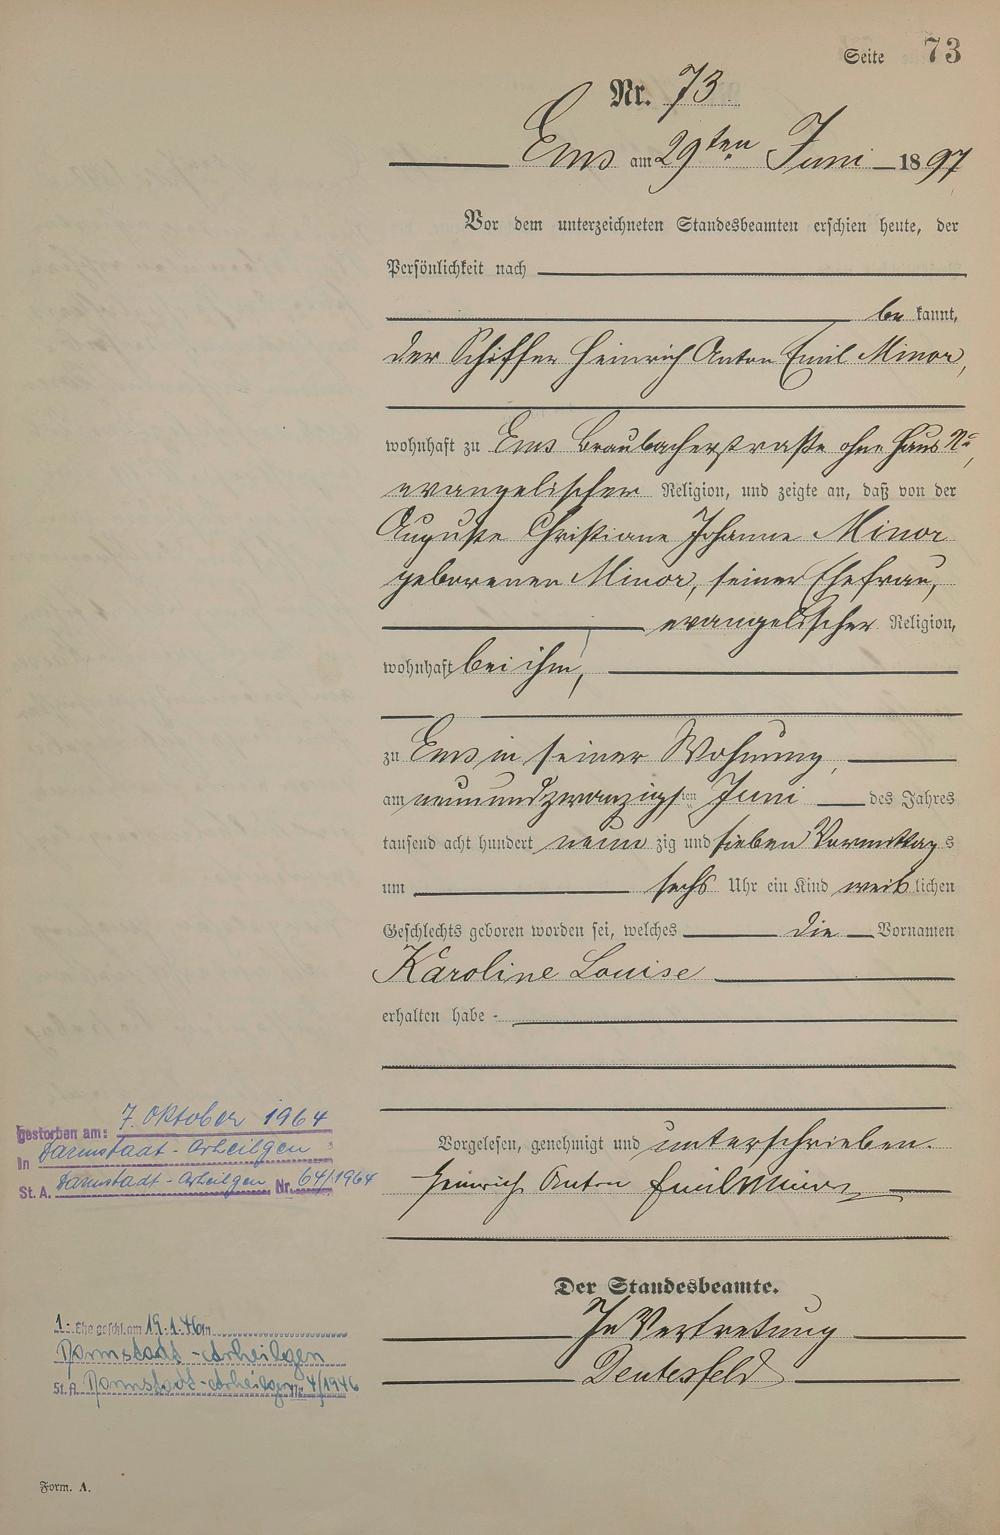 Seite 73
Nr. 73
Ems am 29ten Juni 1897
Vor dem unterzeichneten Standesbeamten erschien heute, der
Persönlichkeit nach
be kannt,
der Schiffer Heinrich Anton Emil Minor,
wohnhaft zu Ems Braubacherstraße ohne Haus No,
evangelischer Religion, und zeigte an, daß von der
Auguste Christiane Johanne Minor
geborenen Minor, seiner Ehefrau,
evangelischer Religion,
wohnhaft bei ihm,
zu Ems in seiner Wohnung,
am neunundzwanzigsten Juni des Jahres
tausend acht hundert neun zig und sieben Vormittags
um sechs Uhr ein Kind weiblichen
Geschlechts geboren worden sei, welches die Vornamen
Karoline Louise
erhalten habe -
Vorgelesen, genehmigt und unterschrieben.
Heinrich Anton Emil Minor
Der Standesbeamte.
In Vertretung
Deutesfeld
gestorben am: 7. Oktober 1964
In Darmstadt-Arheilgen
St. A. Darmstadt-Arheilgen Nr. 64/1964
1. Ehe geschl. am 19.1.46 in
Darmstadt-Arheilgen
St. A. Darmstadt-Arheilgen Nr. 4/1946
Form. A.